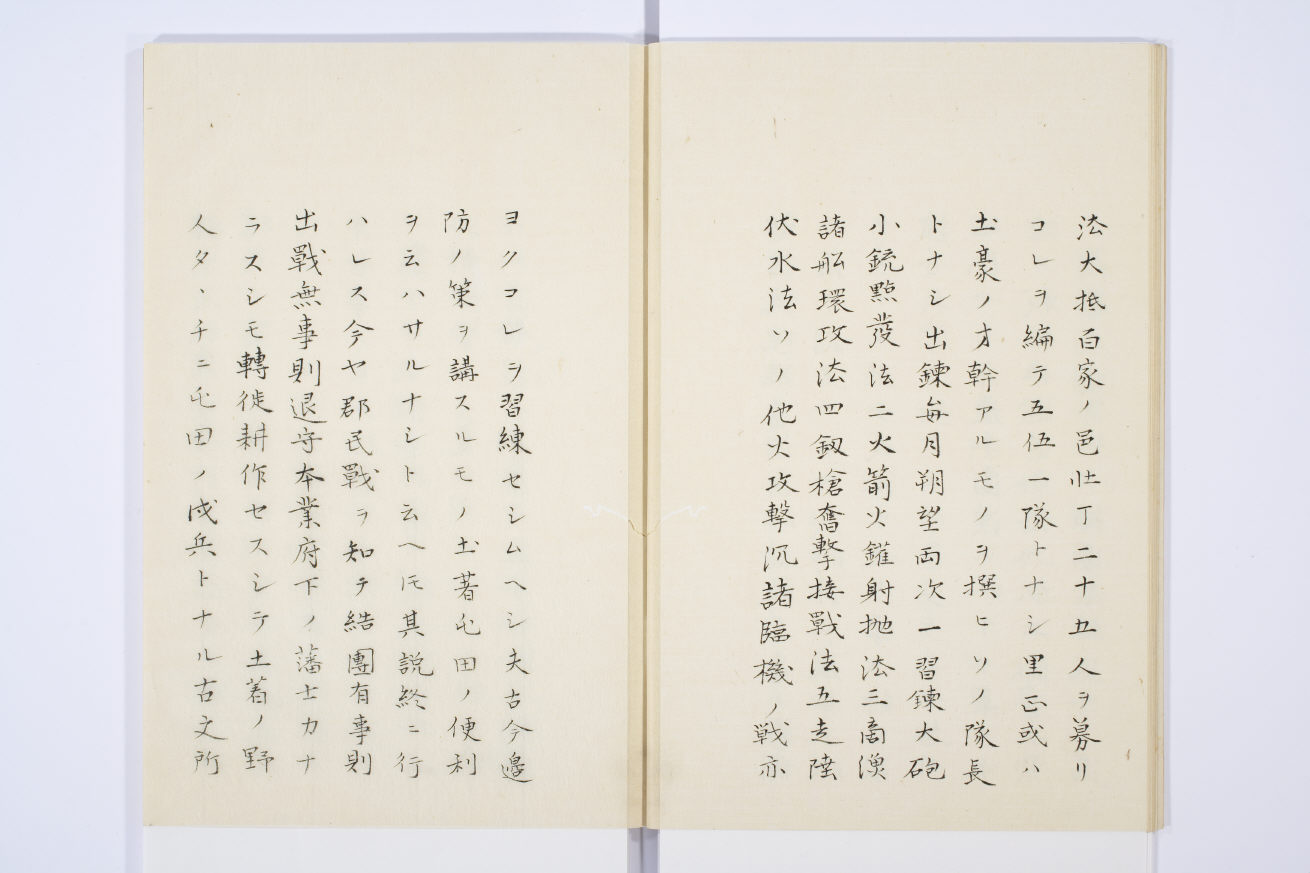 法大抵百家ノ邑壮丁二十五人ヲ募リ
コレヲ編テ五伍一隊トナシ里正或ハ
土豪ノ才幹アルモノヲ撰ヒソノ隊長
トナシ出錬毎月朔望両次一習錬大砲
小銃點發法二火箭火鑵射抛法三商漁
諸船環攻法四釼槍奮擊接戰法五走陸
伏水法ソノ他火攻擊沉諸臨機ノ戦亦
ヨクコレヲ習練セシムヘシ夫古今邊
防ノ策ヲ講スルモノ土著屯田ノ便利
ヲ云ハサルナシト云ヘ𪜈其説終ニ行
ハレス今ヤ郡民戰ヲ知テ結團有事則
出戰無事則退守本業府下ノ藩士カナ
ラスシモ轉徙耕作セスシテ土着ノ野
人タヽチニ屯田ノ戍兵トナル古文所